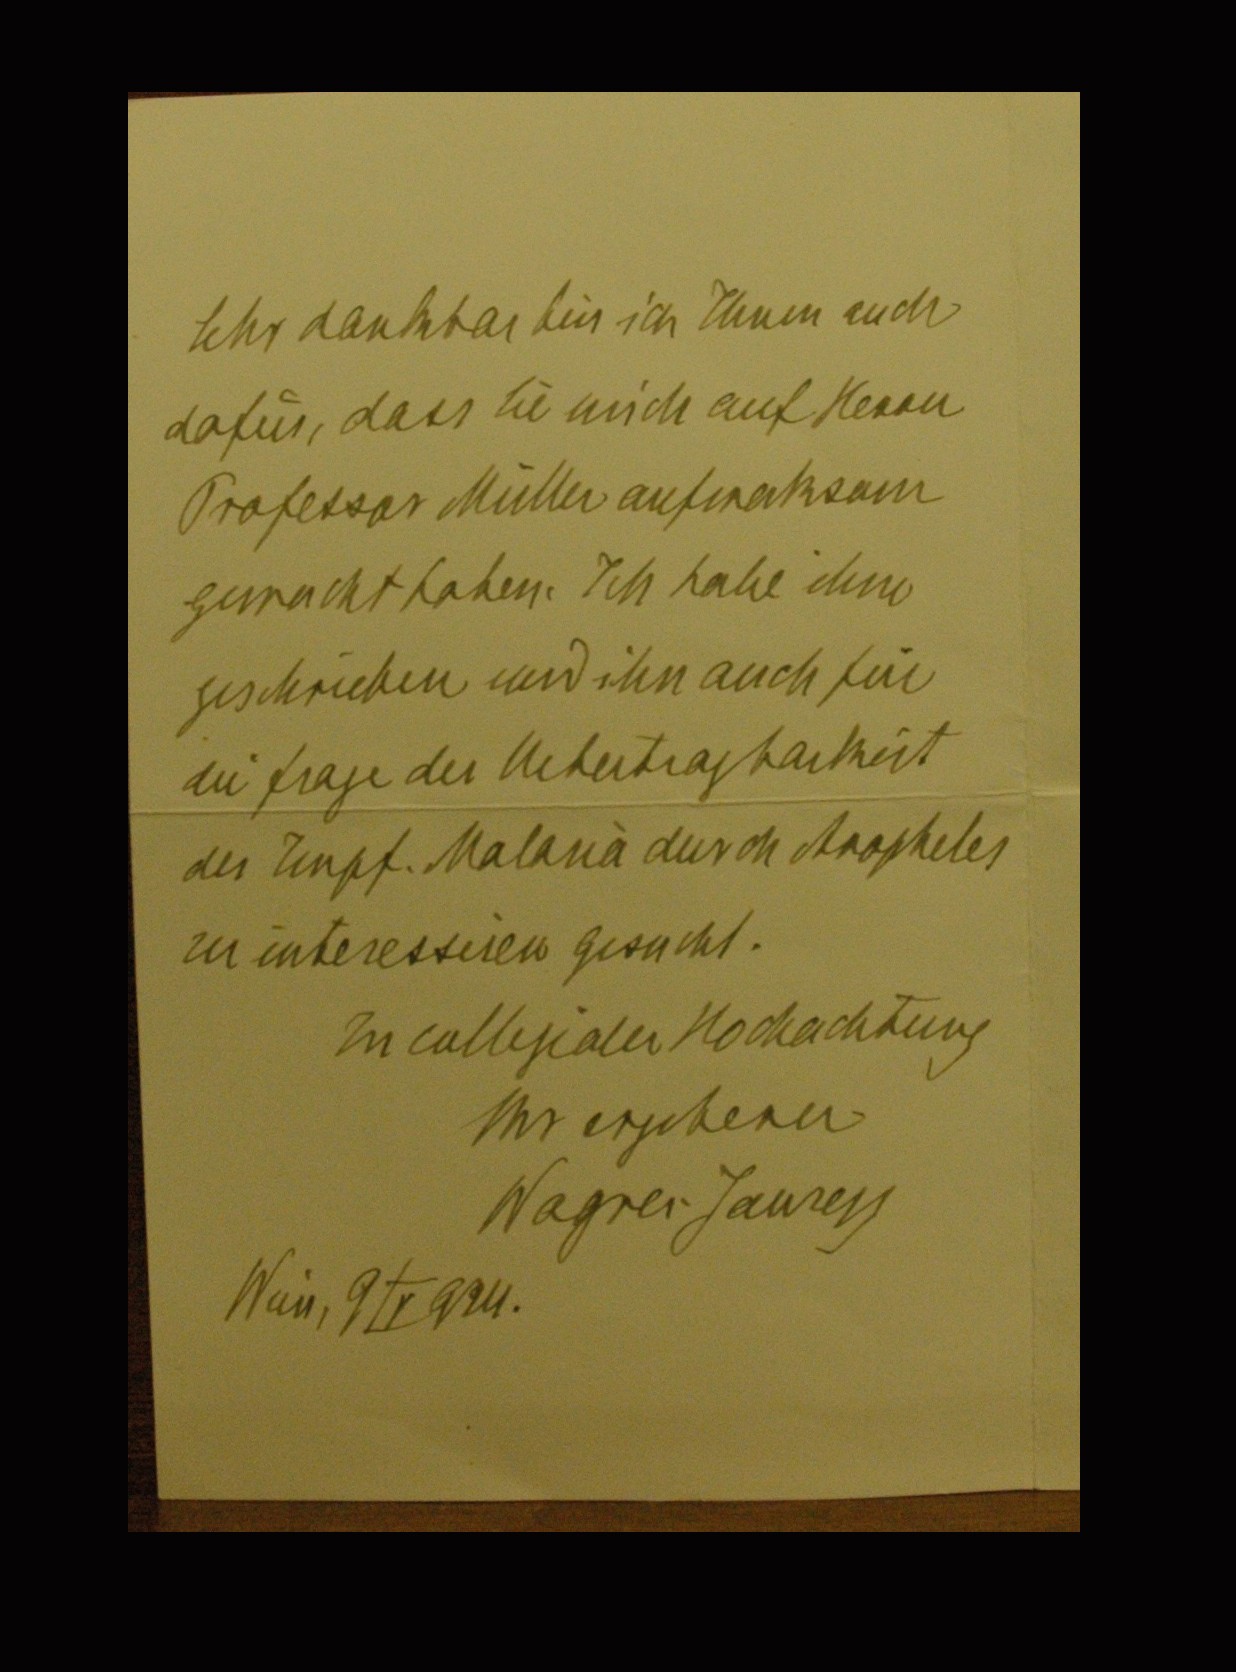 Sehr dankbar bin ich Ihnen auch
dafür, dass Sie mich auf Herrn
Professor Müller aufmerksam
gemacht haben. Ich habe ihm
geschrieben und ihn auch für
die Frage der Uebertragbarkeit
der Impf. Malaria durch Anopheles
zu interessiren gesucht.
In collegialer Hochachtung
Ihr ergebener
Wagner-Jauregg
Wien, 9/IV 924.